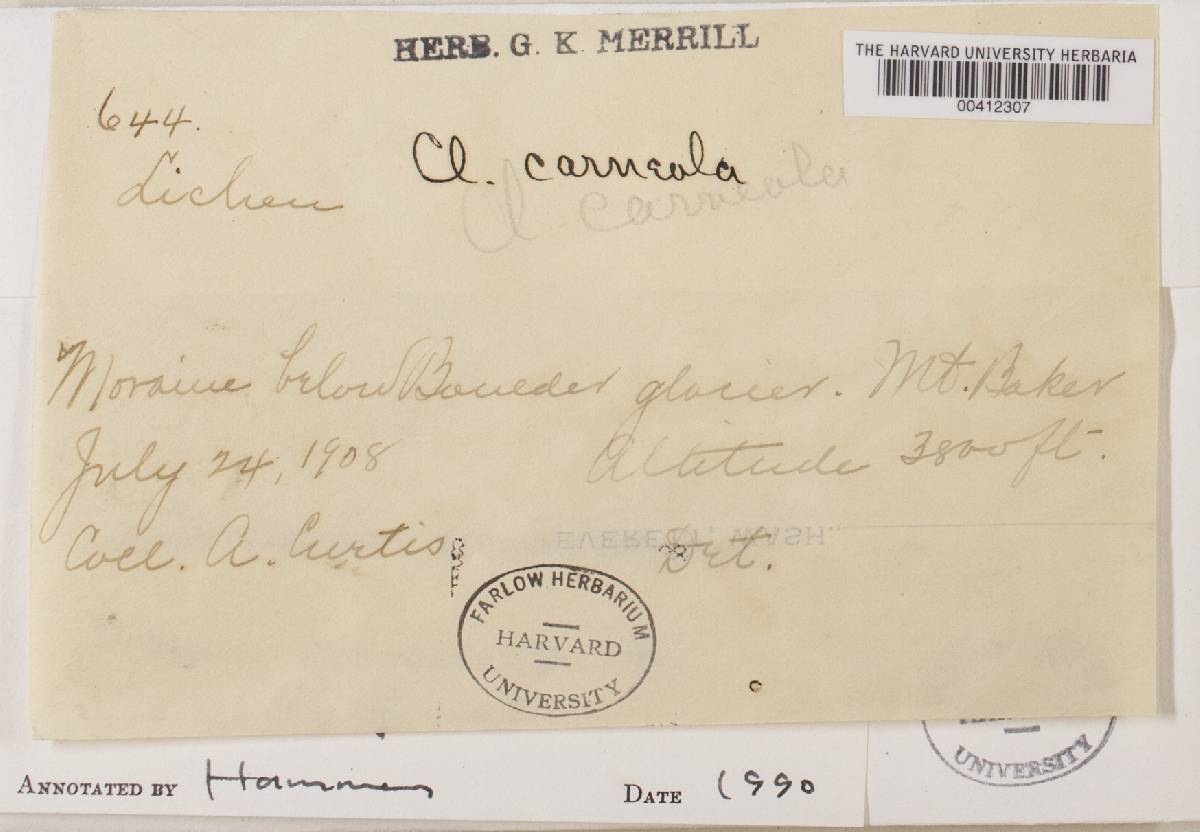 HERB. G. K. MERRILL
THE HARVARD UNIVERSITY HERBARIA
00412307
644.
Cl. carneola
Lichen
Cl. carneola
Moraine below Boulder glacier. Mt. Baker
July 24, 1908 Altitude 3800 ft.
Coll. A. Curtis Det.
EVERETT, WASH.
FARLOW HERBARIUM
HARVARD
UNIVERSITY
UNIVERSITY
ANNOTATED BY Hammer DATE 1990